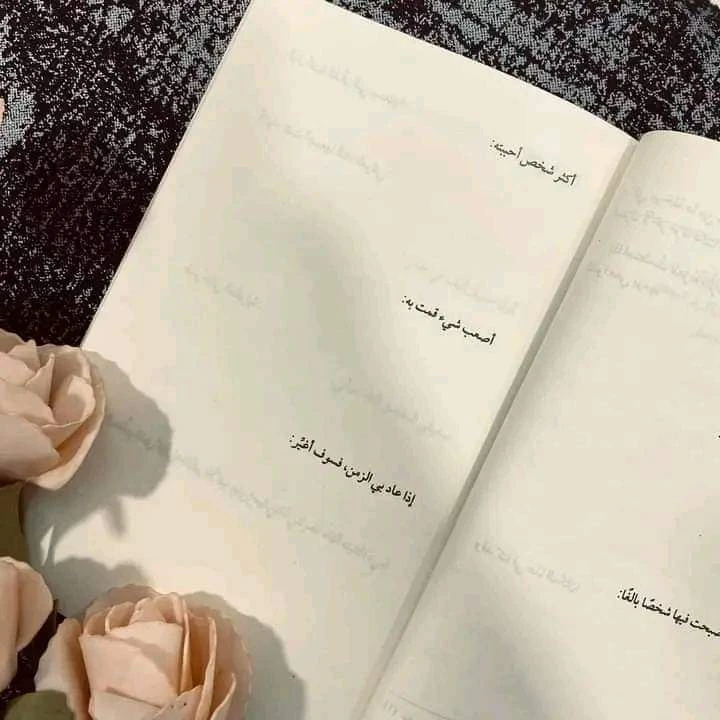 أكثر شخص أحببته:
أصعب شيء قمت به:
إذا عاد بي الزمن، فسوف أغيّر:
فيها شخصًا بالغًا: